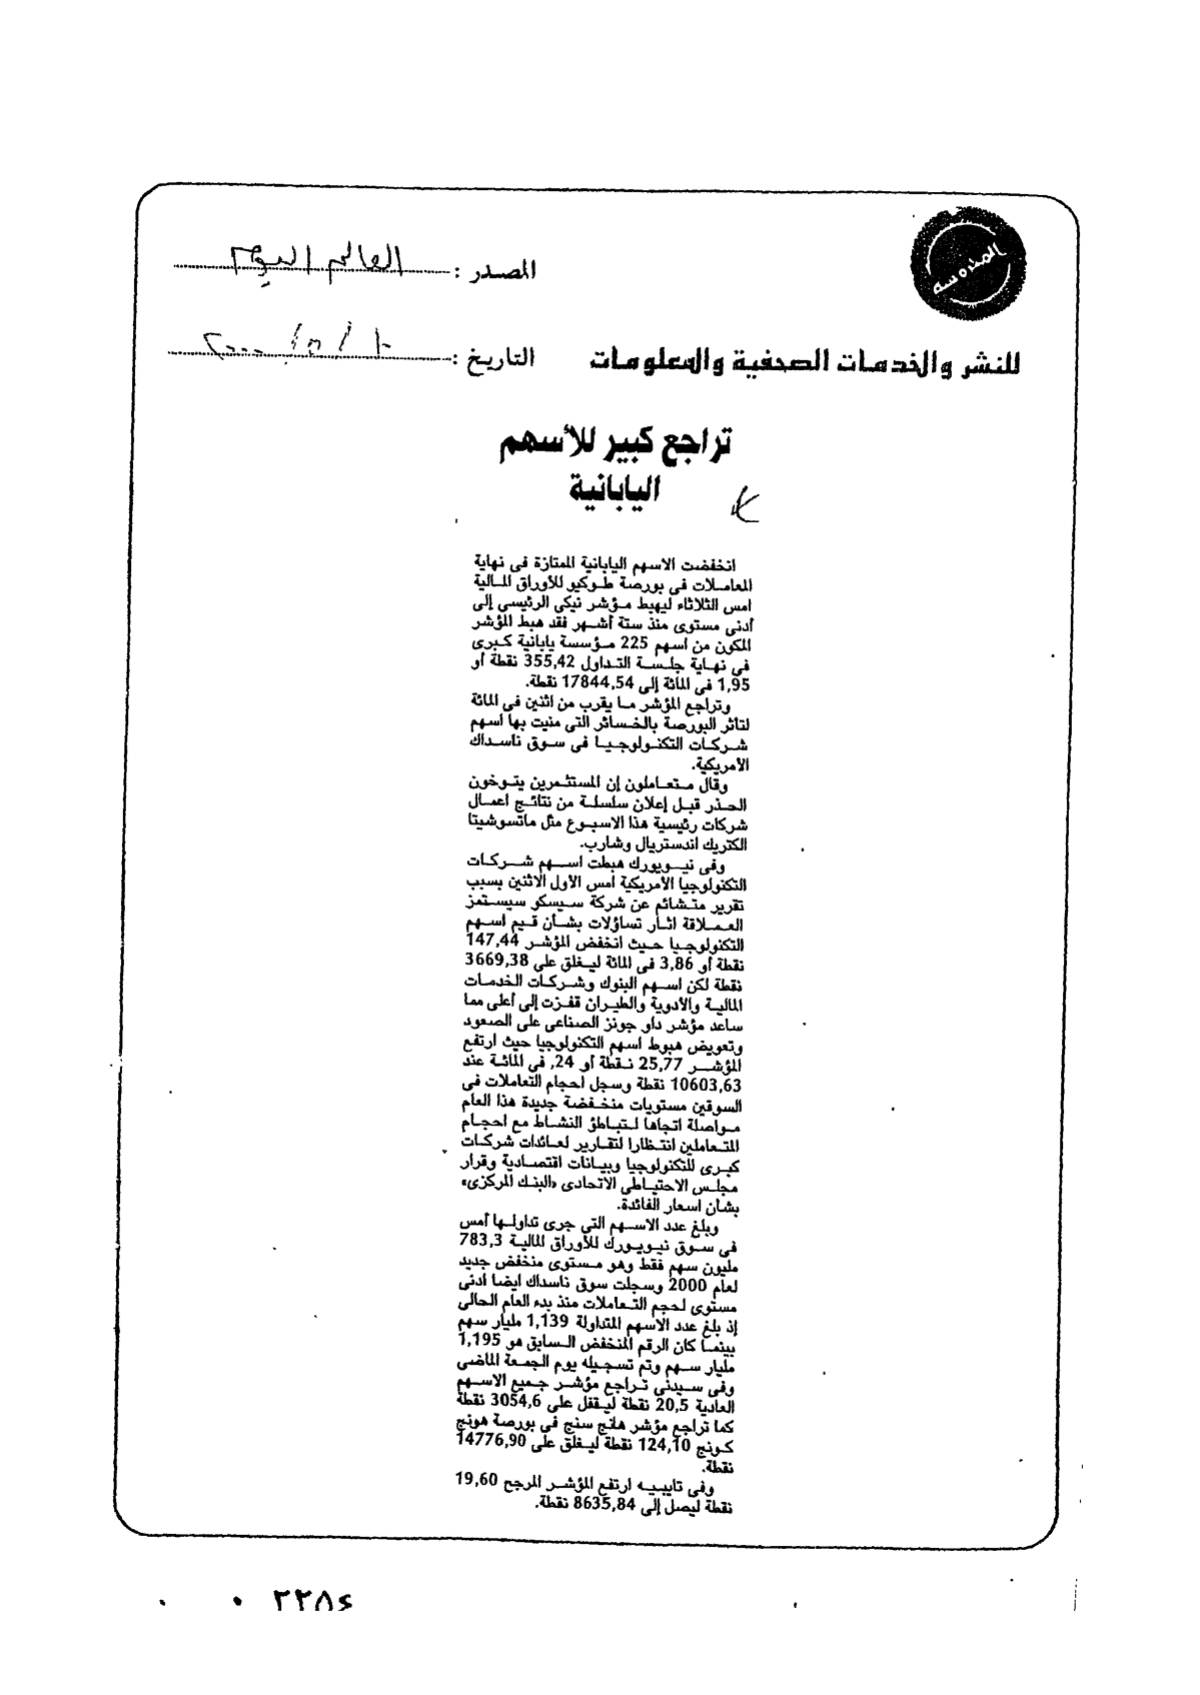 المدرسه
المصدر : العالم اليوم
للنشر والخدمات الصحفية والمعلومات
التاريخ : ١٠ / ٥ / ٢٠٠٠
تراجع كبير للأسهم
اليابانية
انخفضت الاسهم اليابانية الممتازة فى نهاية
المعاملات فى بورصة طوكيو للأوراق المالية
امس الثلاثاء ليهبط مؤشر نيكى الرئيسى إلى
أدنى مستوى منذ ستة أشهر فقد هبط المؤشر
المكون من اسهم 225 مؤسسة يابانية كبرى
فى نهاية جلسة التداول 355,42 نقطة أو
1,95 فى المائة إلى 17844,54 نقطة.
وتراجع المؤشر ما يقرب من اثنين فى المائة
لتاثر البورصة بالخسائر التى منيت بها اسهم
شركات التكنولوجيا فى سوق ناسداك
الأمريكية.
وقال متعاملون إن المستثمرين يتوخون
الحذر قبل إعلان سلسلة من نتائج اعمال
شركات رئيسية هذا الاسبوع مثل ماتسوشيتا
الكتريك اندستريال وشارب.
وفى نيويورك هبطت اسهم شركات
التكنولوجيا الأمريكية امس الأول الاثنين بسبب
تقرير متشائم عن شركة سيسكو سيستمز
العملاقة اثار تساؤلات بشأن قيم اسهم
التكنولوجيا حيث انخفض المؤشر 147,44
نقطة أو 3,86 فى المائة ليغلق على 3669,38
نقطة لكن اسهم البنوك وشركات الخدمات
المالية والأدوية والطيران قفزت إلى أعلى مما
ساعد مؤشر داو جونز الصناعى على الصعود
وتعويض هبوط اسهم التكنولوجيا حيث ارتفع
المؤشر 25,77 نقطة أو 24, فى المائة عند
10603,63 نقطة وسجل احجام التعاملات فى
السوقين مستويات منخفضة جديدة هذا العام
مواصلة اتجاها لتباطؤ النشاط مع احجام
المتعاملين انتظارا لتقارير لعائدات شركات
كبرى للتكنولوجيا وبيانات اقتصادية وقرار
مجلس الاحتياطى الاتحادى «البنك المركزى»
بشان اسعار الفائدة.
وبلغ عدد الاسهم التى جرى تداولها أمس
فى سوق نيويورك للأوراق المالية 783,3
مليون سهم فقط وهو مستوى منخفض جديد
لعام 2000 وسجلت سوق ناسداك ايضا أدنى
مستوى لحجم التعاملات منذ بدء العام الحالى
إذ بلغ عدد الاسهم المتداولة 1,139 مليار سهم
بينما كان الرقم المنخفض السابق هو 1,195
مليار سهم وتم تسجيله يوم الجمعة الماضى
وفى سيدنى تراجع مؤشر جميع الاسهم
العادية 20,5 نقطة ليقفل على 3054,6 نقطة
كما تراجع مؤشر هانج سنج فى بورصة هونج
كونج 124,10 نقطة ليغلق على 14776,90
نقطة.
وفى تايبيه ارتفع المؤشر المرجح 19,60
نقطة ليصل إلى 8635,84 نقطة.
٢٢٨٤